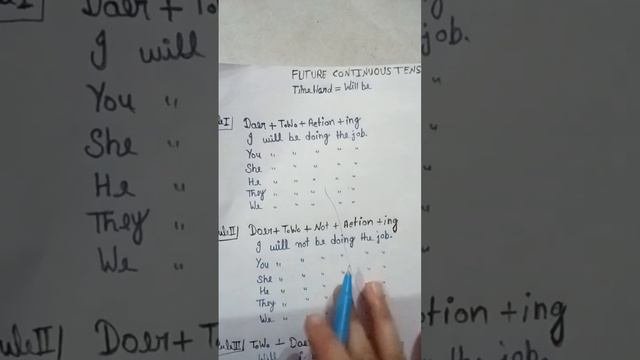 FUTURE CONTINUOUS TENS
TimeWord = Will be
uleI Doer + ToWo + Action + ing
I will be doing the job.
You " " " " "
She " " " " "
He " " " " "
They " " " " "
We " " " " "
uleII Doer + ToWo + Not + Action + ing
I will not be doing the job.
You " " " " " "
She " " "
He " " "
They " "
We "
uleIII/ ToWo +
Will